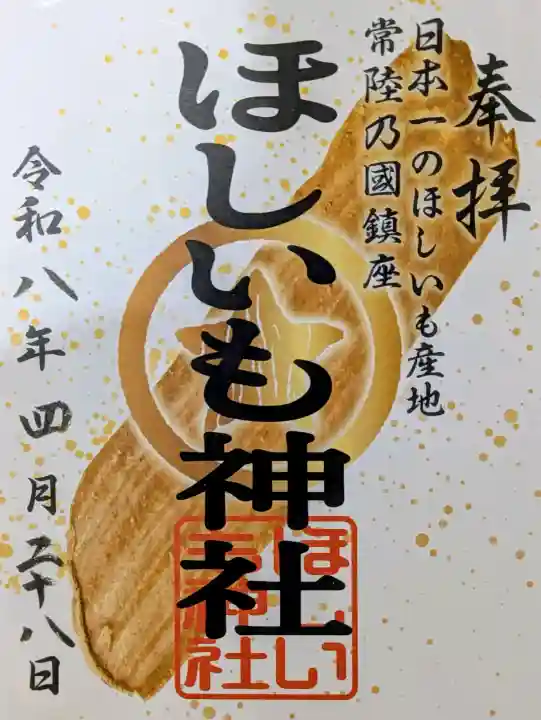 奉拝
日本一のほしいも産地
常陸乃國鎮座
ほしいも神社
令和八年四月二十八日
ほしい
も神社